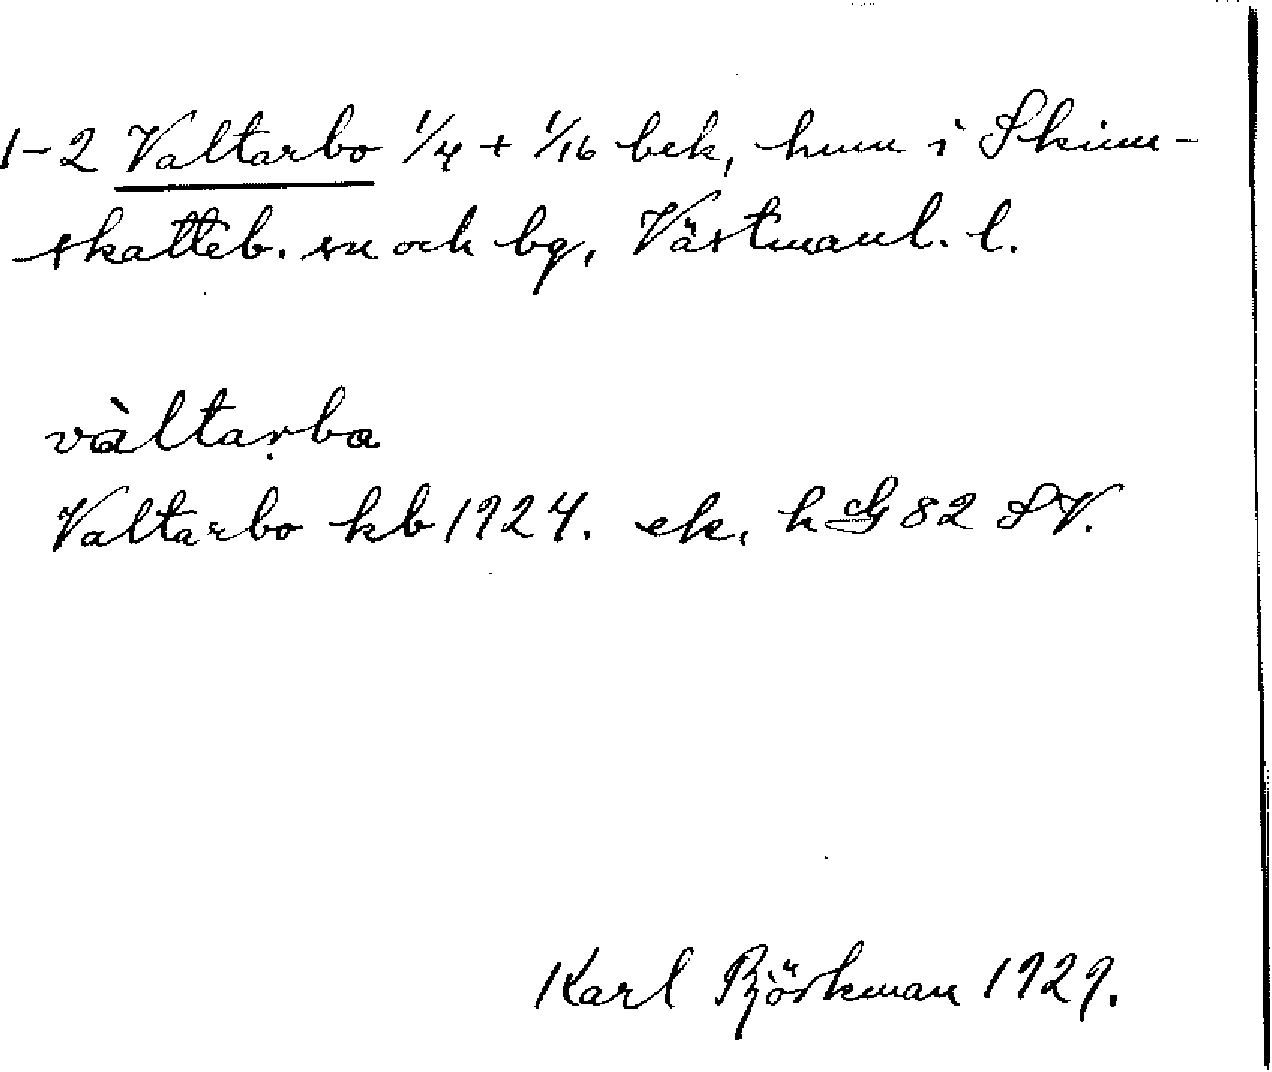 1-2 Valtarbo 1/4 + 1/16 bek, hmn i Skinn-
skatteb. sn och bg, Västmanl. l.
vàltaṛbo
Valtarbo kb 1924. ek. h G 82 SV.
Karl Björkman 1929.